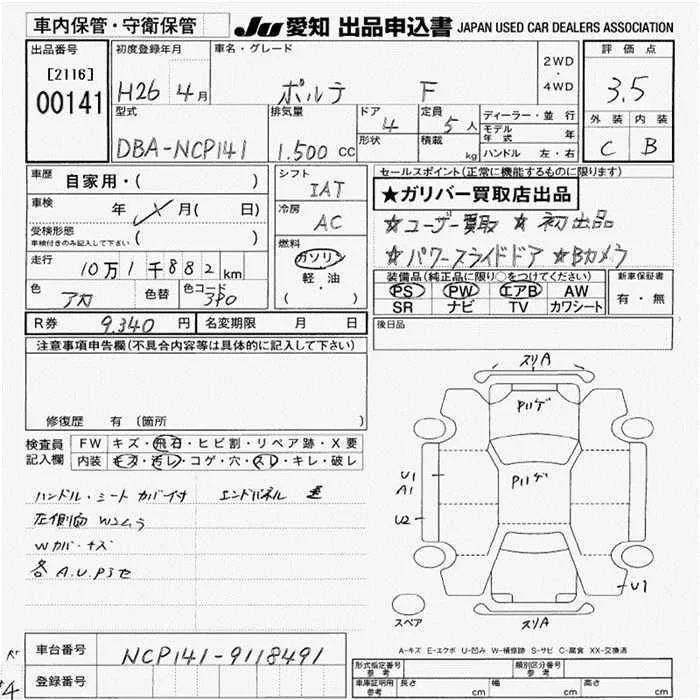 車内保管・守衛保管
JU 愛知 出品申込書 JAPAN USED CAR DEALERS ASSOCIATION
出品番号
[2116]
00141
初度登録年月
H26 4月
車名・グレード
ポルテ F
2WD
・
4WD
評価点
3.5
外装 内装
C B
型式
DBA-NCP141
排気量
1.500 cc
ドア
4
形状
定員
5人
積載
kg
ディーラー・並行
モデル年式 年
ハンドル 左・右
車歴
自家用・( )
車検
年 月( 日)
受検形態
車検付きのみ記入して下さい ( )
走行
10万1千882km
色
アカ
色替
色コード
3P0
シフト
IAT
冷房
AC
燃料
ガソリン
軽・油
( )
セールスポイント(正常に機能するものに限ります)
★ガリバー買取店出品
☆ユーザー買取 ☆初出品
☆パワースライドドア ☆Bカメラ
装備品(純正品に限り○をつけてください)
PS PW エアB AW
SR ナビ TV カワシート
新車保証書
有・無
後日品
R券 9.340円 名変期限 月 日
注意事項申告欄(不具合内容等は具体的に記入して下さい)
修復歴 有〔箇所 〕
検査員記入欄
FW キズ・飛石・ヒビ割・リペア跡・X要
内装 キズ・汚レ・コゲ・穴・スレ・キレ・破レ
ハンドル・シートカバー付 エンドパネル
左側面 Wムラ
Wカバーキズ
各A.U.Pキセ
スリA
Pリゲ
Pリゲ
U1
A1
U2
U1
スリA
スペア
A-キズ E-エクボ U-凹み W-補修跡 S-サビ C-腐食 XX-交換済
車台番号 NCP141-9118491
登録番号
形式指定番号 参考
類別区分番号 参考
車庫証明用 参考 長さ cm 幅 cm 高さ cm